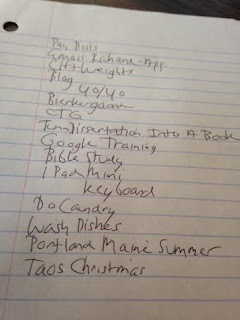 Pay Bills
Email Richard - App.
Lift Weights
Blog
40/40
Bierkergaard
CTG
Turn Dissertation Into A Book
Google Training
Bible Study
iPad Mini
Keyboard
Do Laundry
Wash Dishes
Portland Maine Summer
Taos Christmas